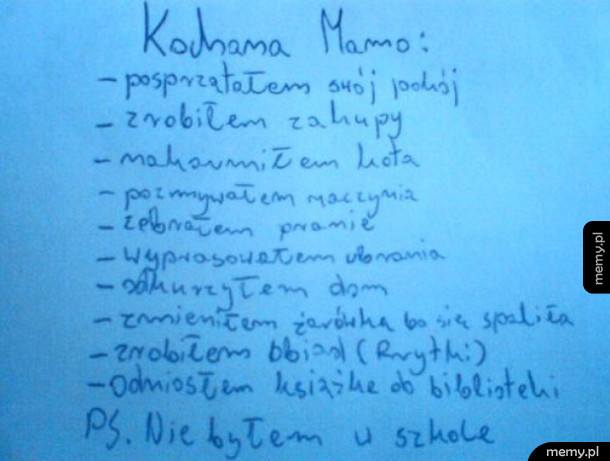 Kochana Mamo:
- posprzątałem swój pokój
- zrobiłem zakupy
- nakarmiłem kota
- pozmywałem naczynia
- zebrałem pranie
- wyprasowałem ubrania
- odkurzyłem dom
- zmieniłem żarówkę bo się spaliła
- zrobiłem obiad (frytki)
- Odniosłem książkę do biblioteki
PS. Nie byłem w szkole
memy.pl
memy.pl